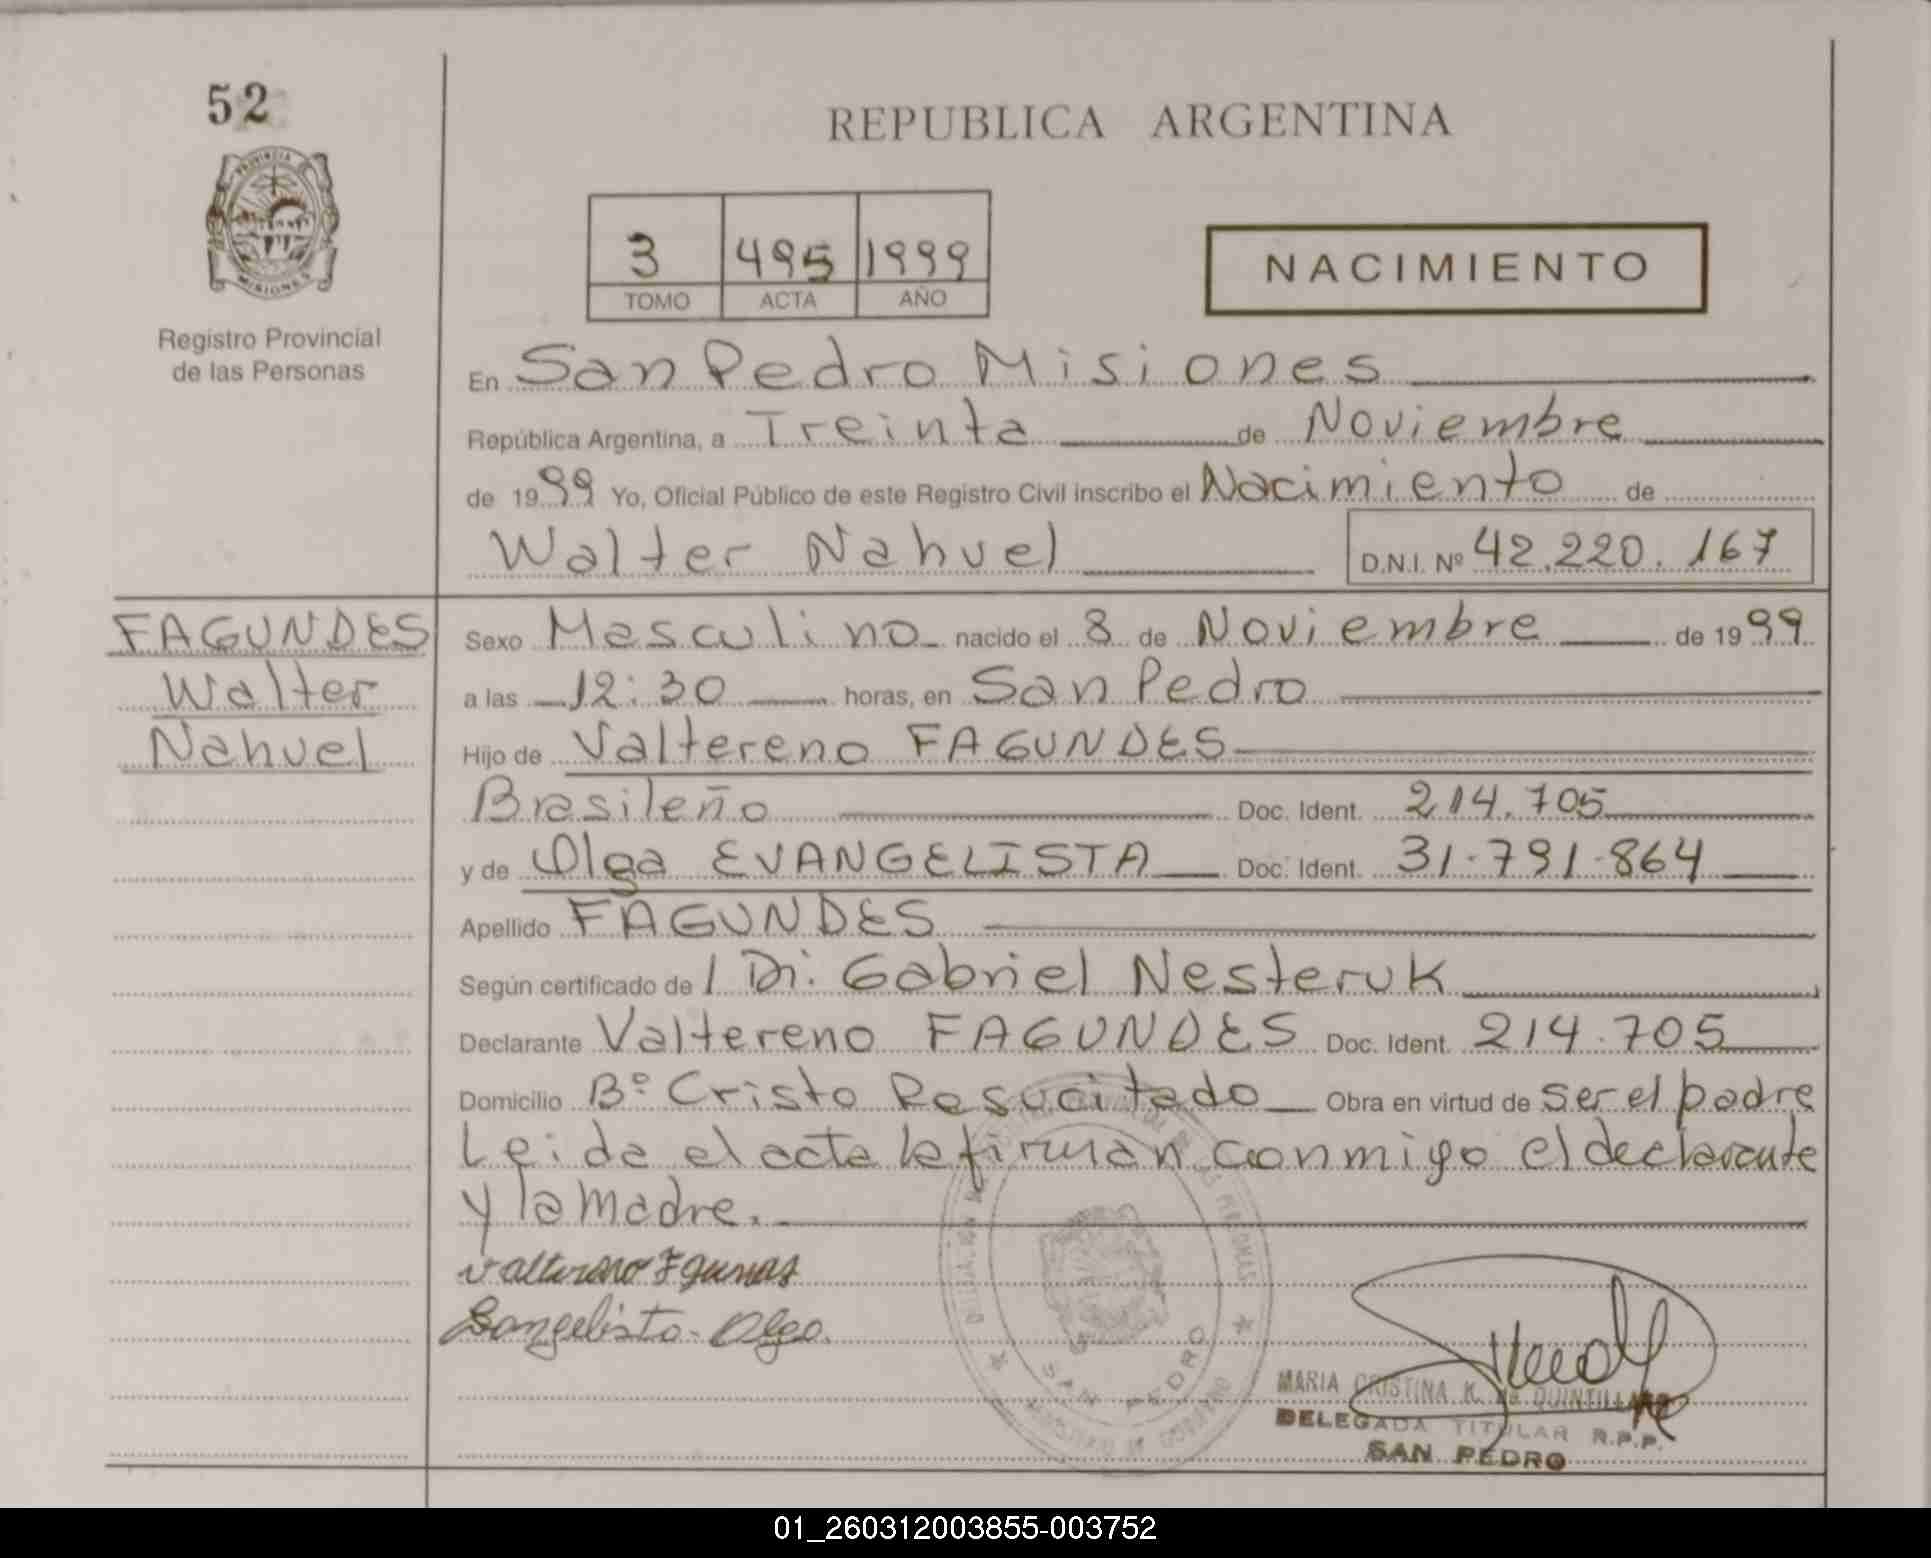 52
PROVINCIA
MISIONES
Registro Provincial
de las Personas
REPUBLICA ARGENTINA
3 495 1999
TOMO ACTA AÑO
NACIMIENTO
En San Pedro Misiones
República Argentina, a Treinta de Noviembre
de 1999 Yo, Oficial Público de este Registro Civil inscribo el Nacimiento de
Walter Nahuel D.N.I. Nº 42.220.167
FAGUNDES
Walter
Nahuel
Sexo Masculino nacido el 8 de Noviembre de 1999
a las 12:30 horas, en San Pedro
Hijo de Valtereno FAGUNDES
Brasileño Doc. Ident. 214.705
y de Olga EVANGELISTA Doc. Ident. 31.791.864
Apellido FAGUNDES
Según certificado de Gabriel Nesteruk
Declarante Valtereno FAGUNDES Doc. Ident. 214.705
Domicilio Bº Cristo Resucitado Obra en virtud de ser el padre
Leida el acta la firman conmigo el declarante
y la madre.
Olga
SAN PEDRO
MARIA CRISTINA K. DE
DELEGADA TITULAR R.P.P.
SAN PEDRO
01_260312003855-003752